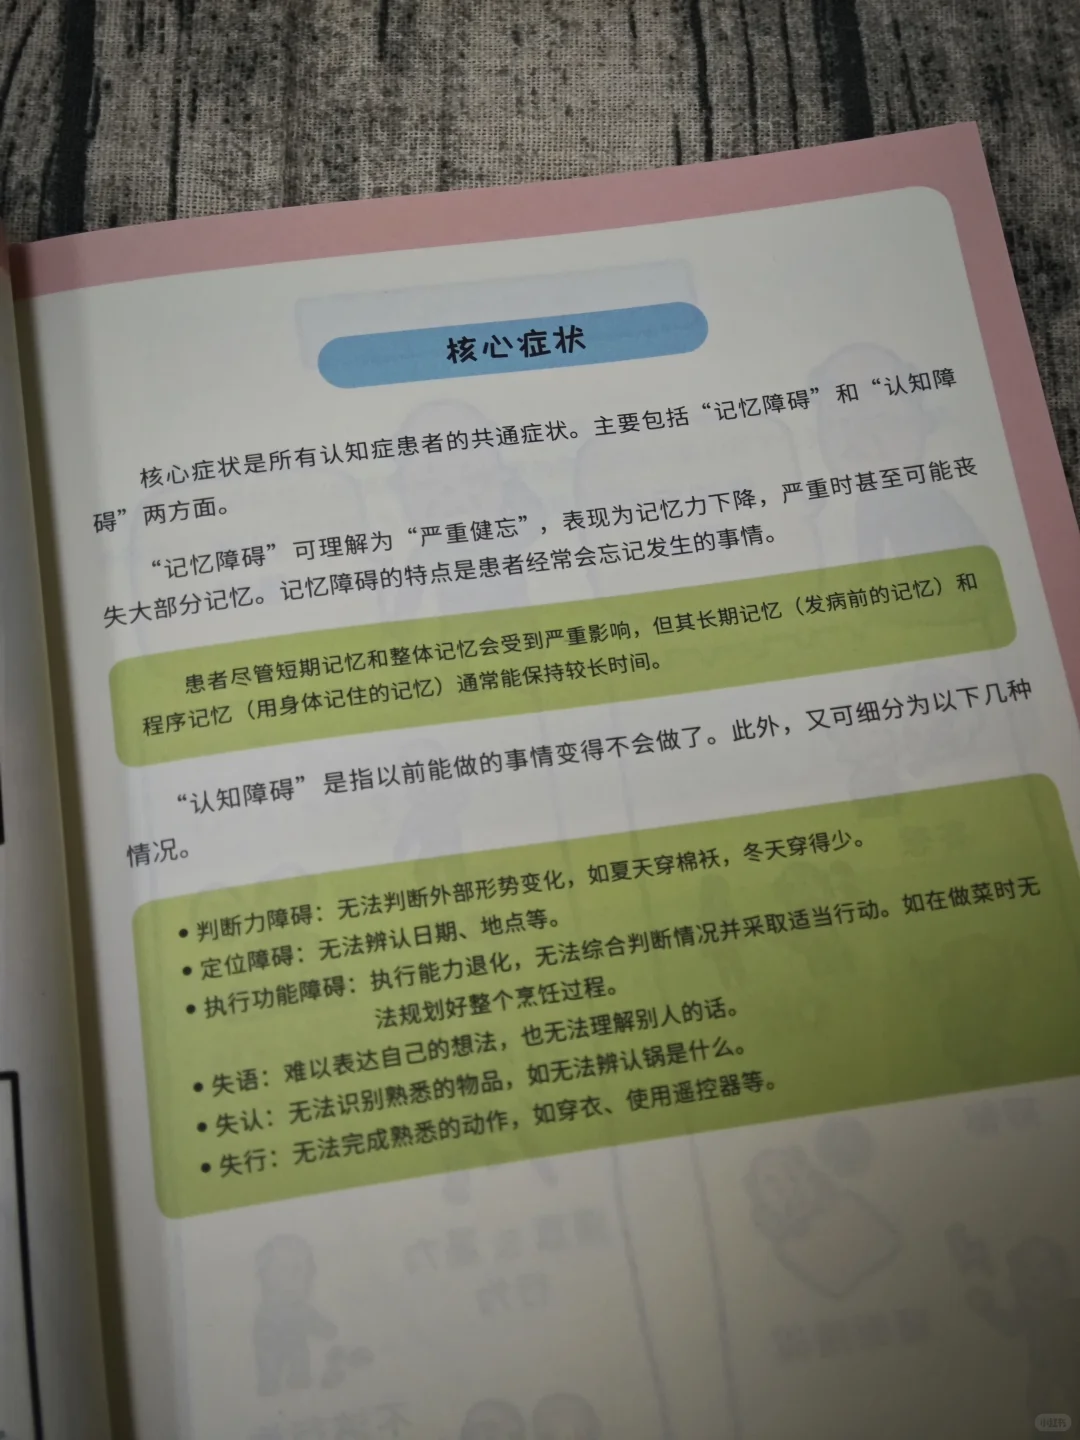 核心症状
核心症状是所有认知症患者的共通症状。主要包括“记忆障碍”和“认知障
碍”两方面。
“记忆障碍”可理解为“严重健忘”，表现为记忆力下降，严重时甚至可能丧
失大部分记忆。记忆障碍的特点是患者经常会忘记发生的事情。
患者尽管短期记忆和整体记忆会受到严重影响，但其长期记忆（发病前的记忆）和
程序记忆（用身体记住的记忆）通常能保持较长时间。
“认知障碍”是指以前能做的事情变得不会做了。此外，又可细分为以下几种
情况。
•判断力障碍：无法判断外部形势变化，如夏天穿棉袄，冬天穿得少。
•定位障碍：无法辨认日期、地点等。
•执行功能障碍：执行能力退化，无法综合判断情况并采取适当行动。如在做菜时无
法规划好整个烹饪过程。
•失语：难以表达自己的想法，也无法理解别人的话。
•失认：无法识别熟悉的物品，如无法辨认锅是什么。
•失行：无法完成熟悉的动作，如穿衣、使用遥控器等。
小红书